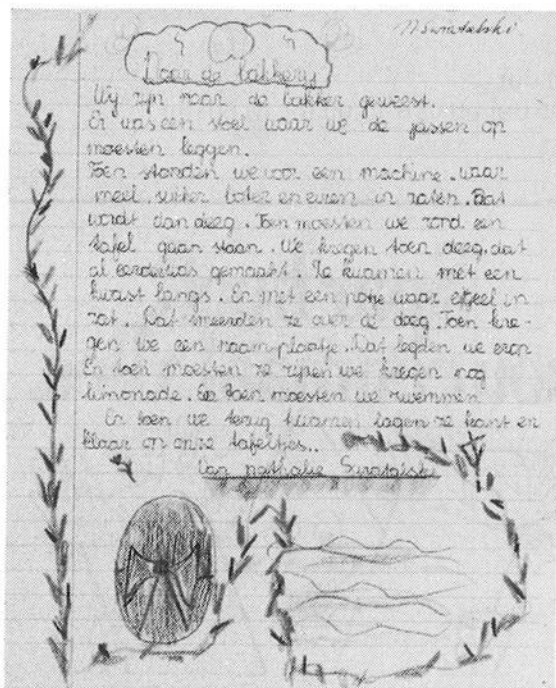 N Swiatalski
Naar de bakkerij
Wij zijn naar de bakker geweest.
Er was een stoel waar we de jassen op
moesten leggen.
Toen stonden we voor een machine. waar
meel, suiker boter en eieren in zaten. Dat
wordt dan deeg. Toen moesten we rond een
tafel gaan staan. We kregen toen deeg, dat
al eerder was gemaakt. Ze kwamen met een
kwast langs. En met een potje waar eigeel in
zat. Dat smeerden ze over de deeg. Toen kre-
gen we een naam-plaatje. Dat legden we erop
En toen moesten ze rijzen we kregen nog
limonade. En toen moesten we zwemmen
En toen we terug kwamen lagen ze kant en
klaar on onze tafeltjes..
Van nathalie Swiatalski